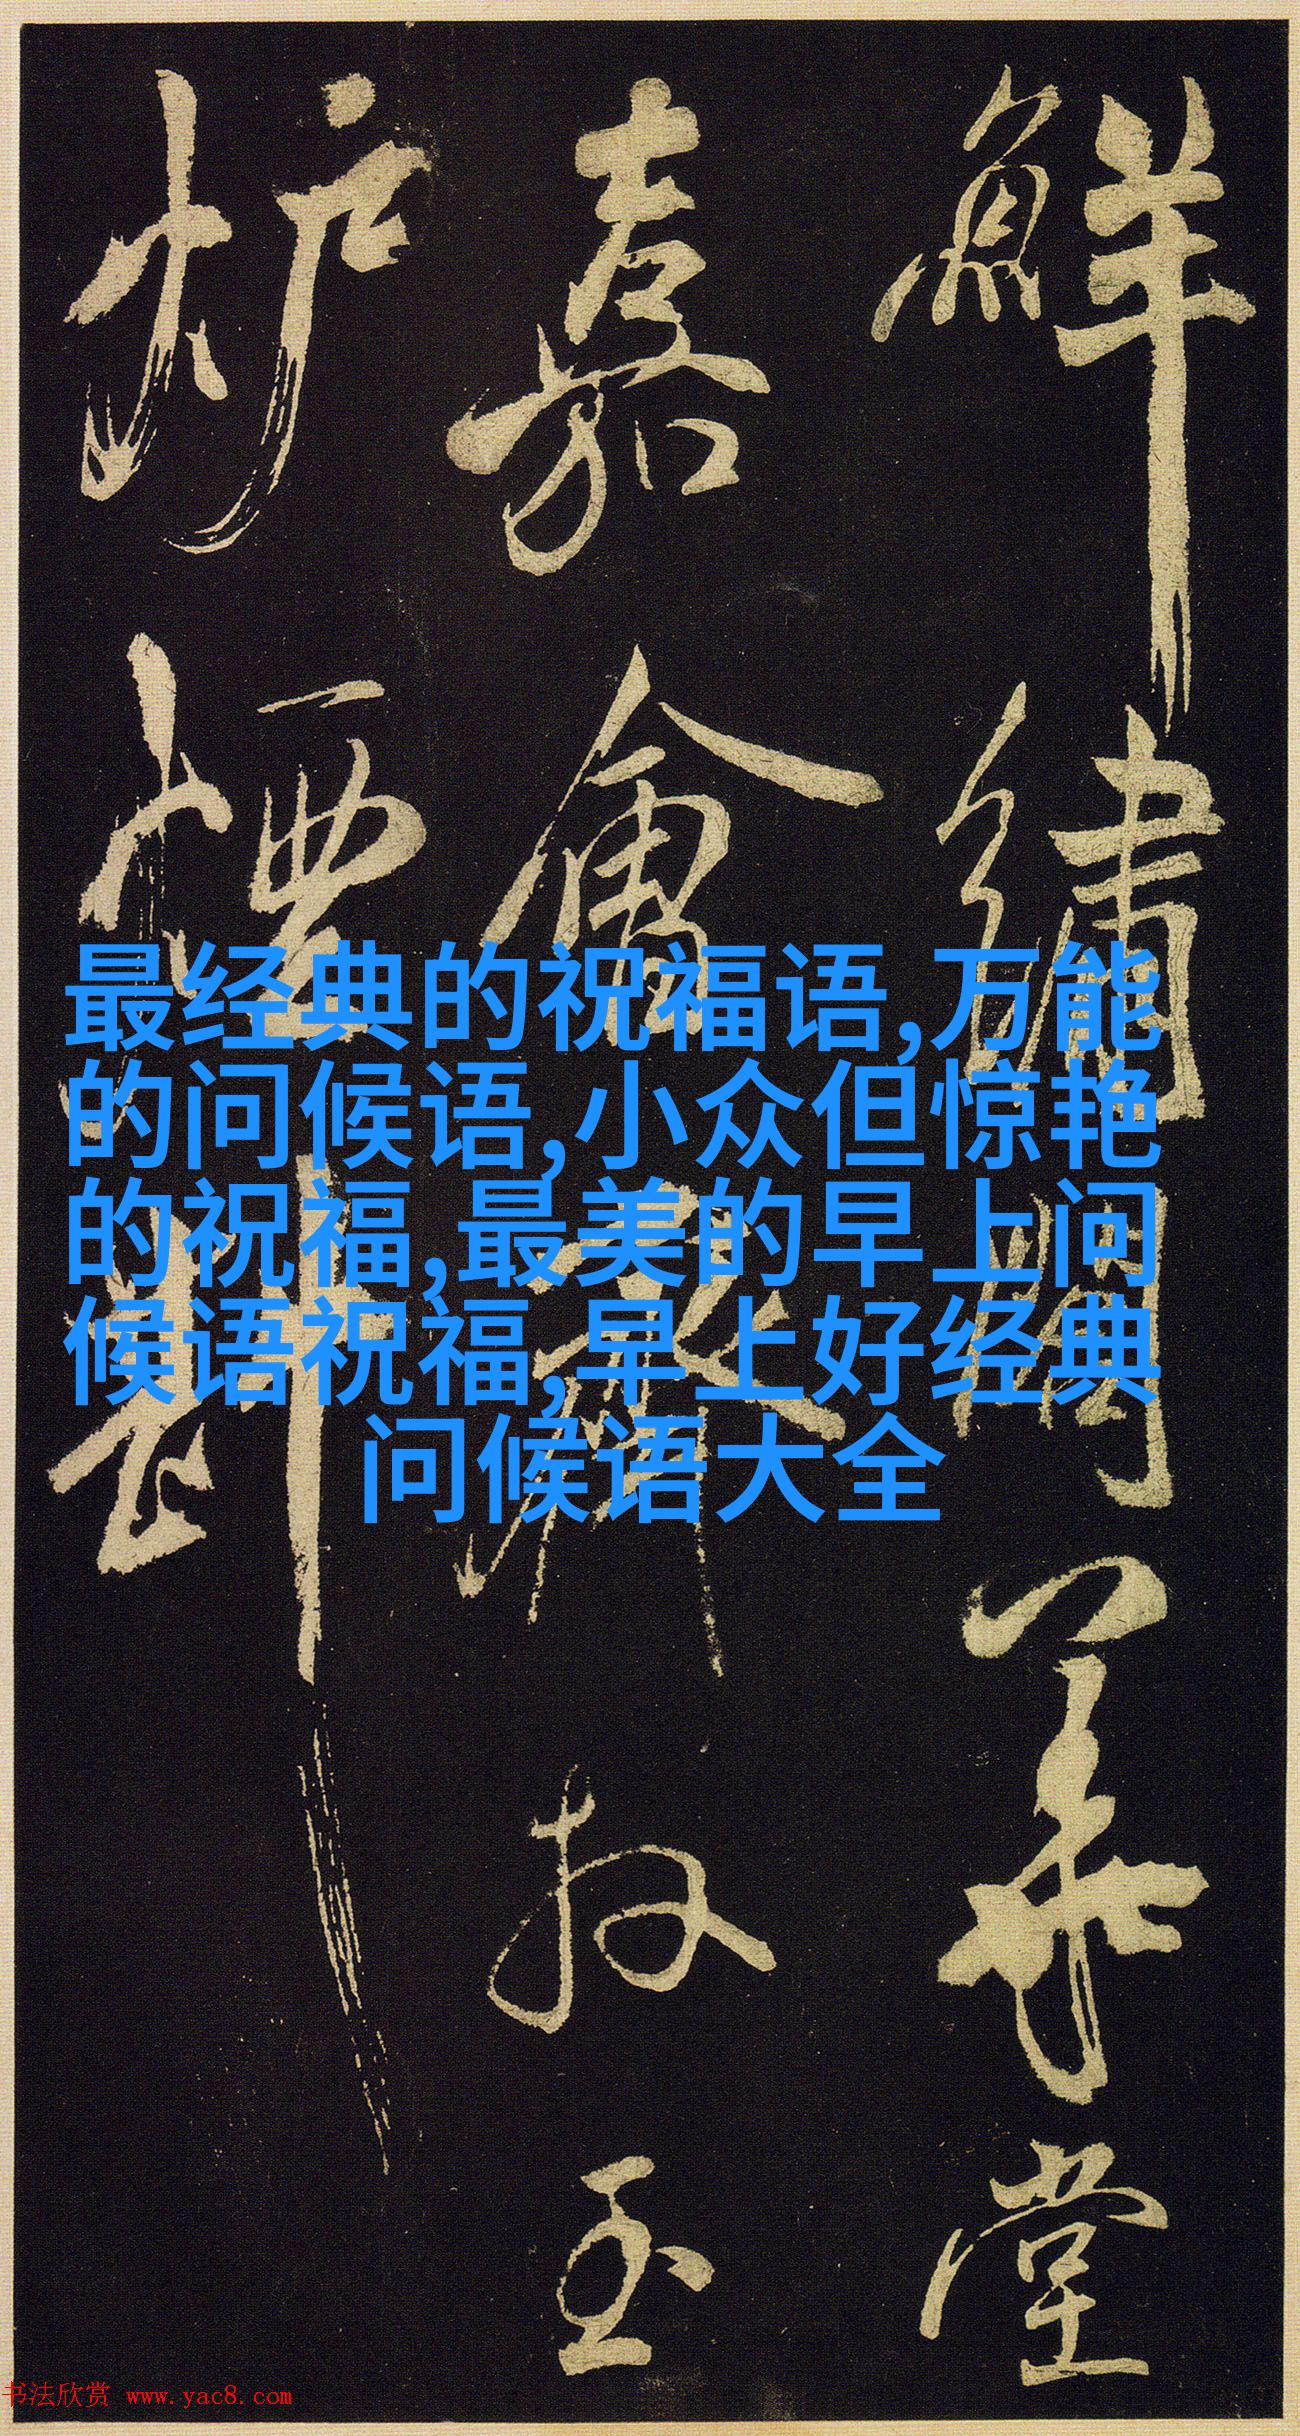 鮮繡閣華堂
嘉會
放玉
炉裀
最经典的祝福语,万能
的问候语,小众但惊艳
的祝福,最美的早上问
候语祝福,早上好经典
问候语大全
书法欣赏 www.yac8.com